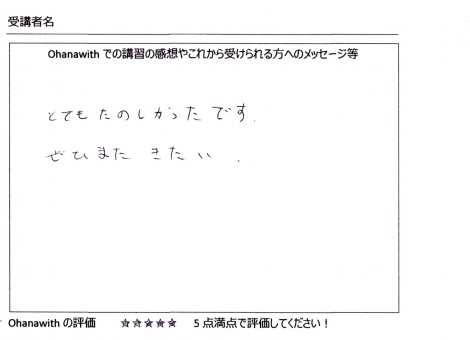 受講者名
Ohanawith での講習の感想やこれから受けられる方へのメッセージ等
とてもたのしかったです.
ぜひまた きたい.
Ohanawith の評価 ☆☆☆☆☆ 5 点満点で評価してください！